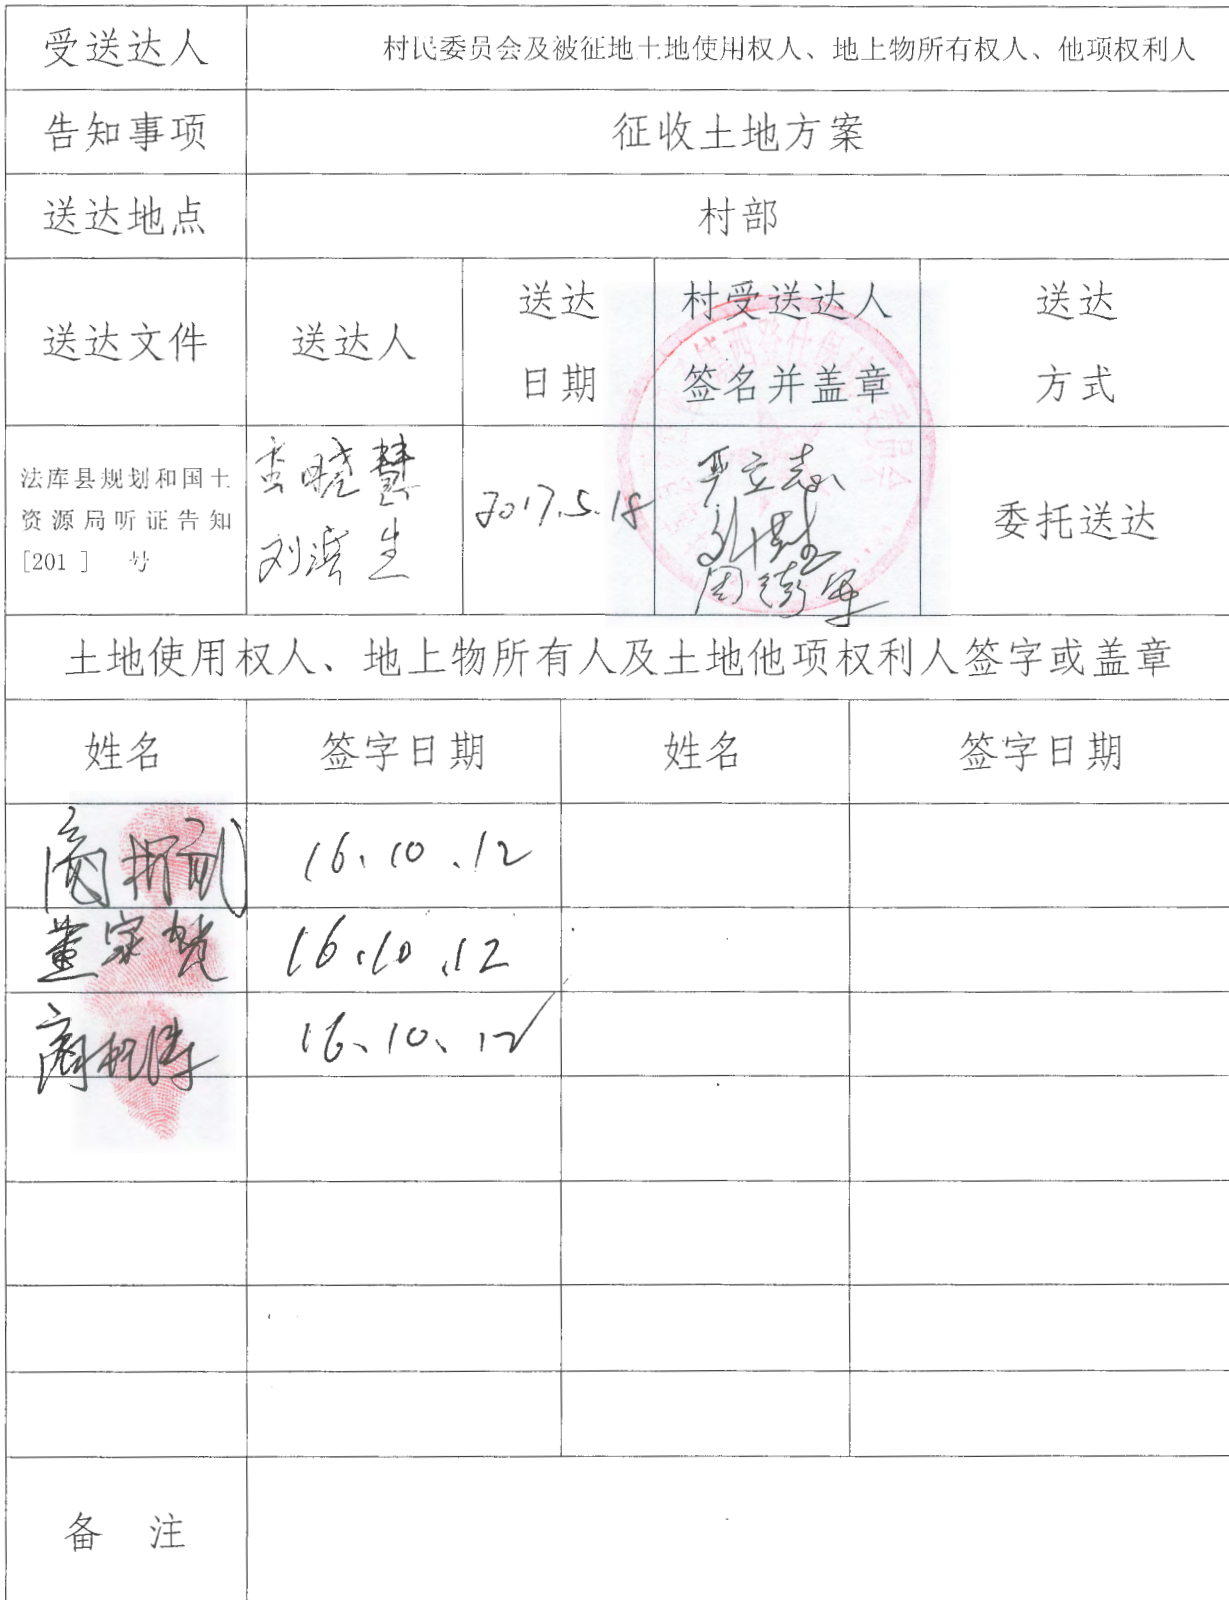 受送达人
村民委员会及被征地土地使用权人、地上物所有权人、他项权利人
告知事项
征收土地方案
送达地点
村部
送达文件
送达人
送达
日期
村受送达人
签名并盖章
送达
方式
法库县规划和国土
资源局听证告知
[201 ] 号
栾晓慧
刘滨生
2017.5.18
严立志
委托送达
土地使用权人、地上物所有人及土地他项权利人签字或盖章
姓名
签字日期
姓名
签字日期
16、10、12
董家
16.10.12
16、10、12
备 注